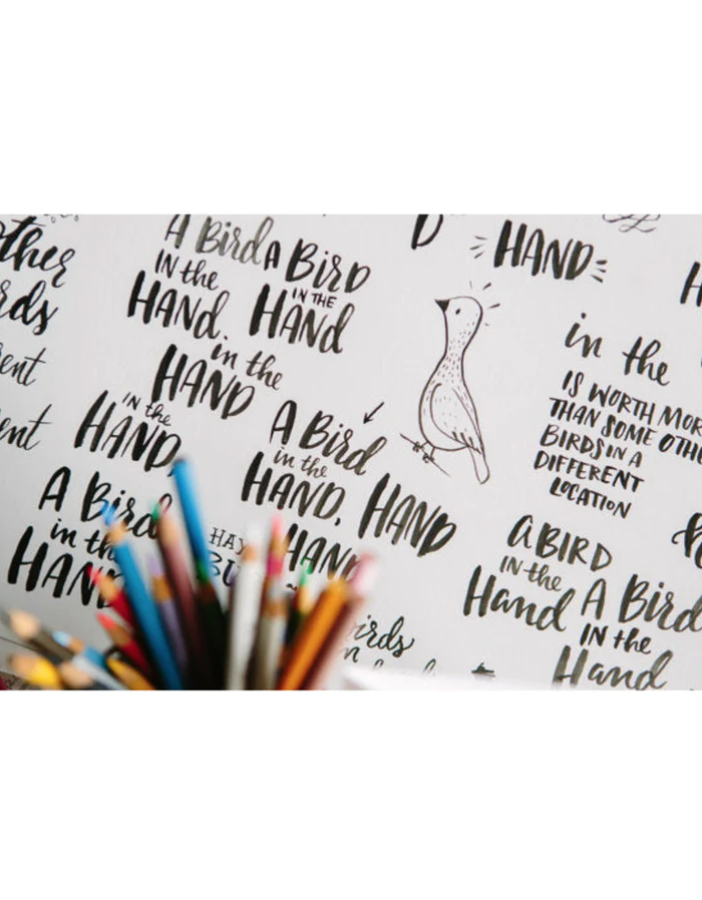 ther
rds
ent
ent
A Bird
IN the
HAND.
A BIRD
IN THE
HAND
in the
HAND
IN the
HAND
A Bird
in the
HAND,
HAND
A Bird
in the
HAND
HAND
D
HAND
in the
IS WORTH MOR
THAN SOME OTHE
BIRDS IN A
DIFFERENT
LOCATION
A BIRD
IN the
Hand
A Bird
IN the
Hand
HAY
BU
irds